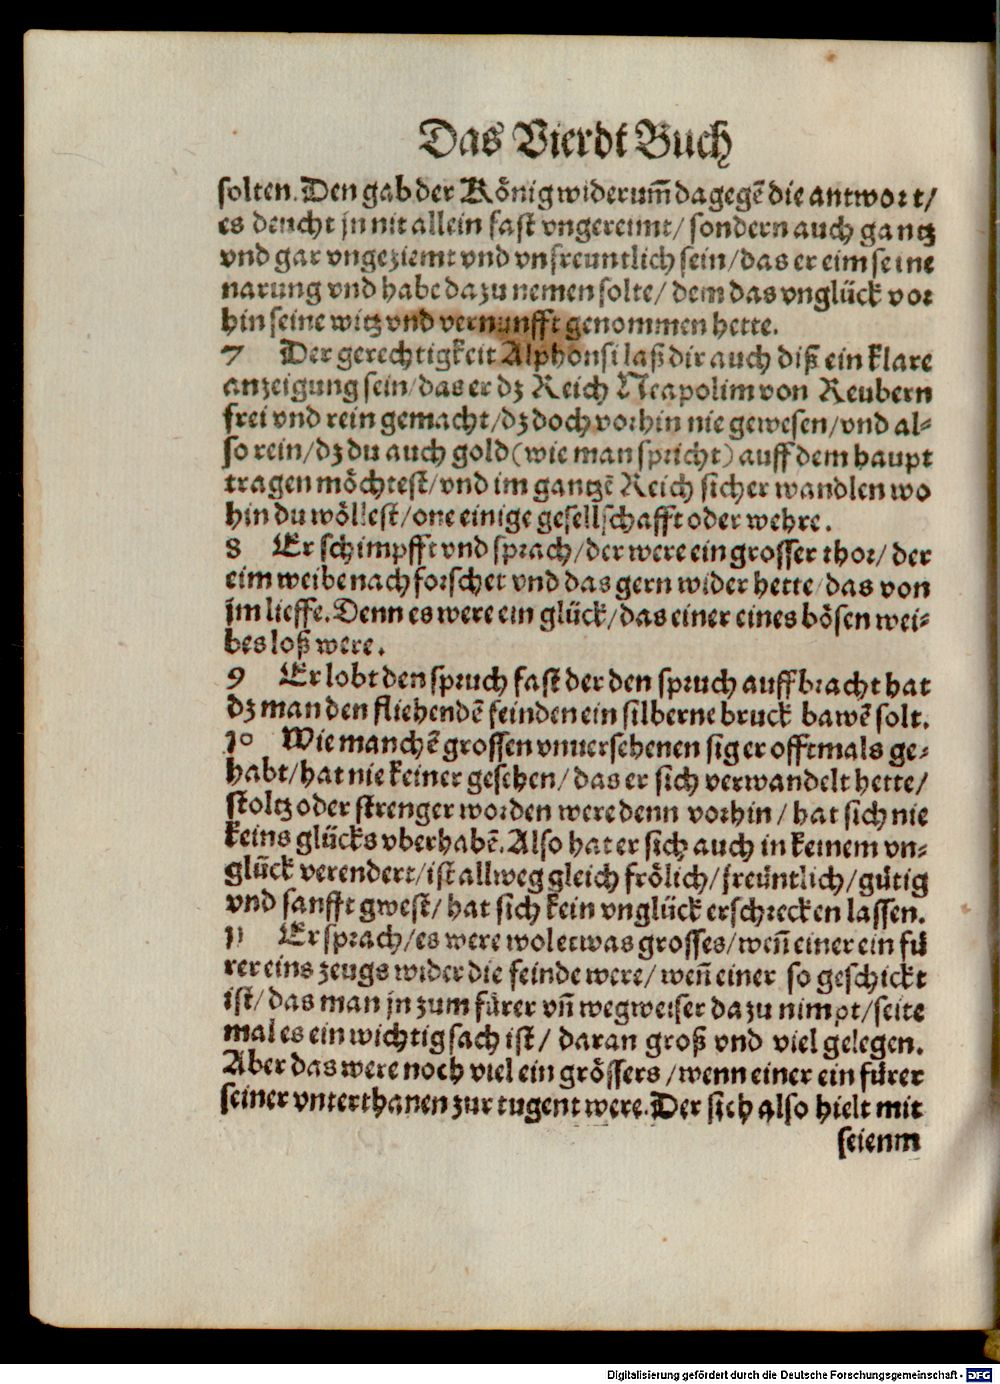 Das Vierdt Buch
solten. Den gab der König widerum̃ dagegẽ die antwort/
es deucht jn nit allein fast vngereimt/ sondern auch gantz
vnd gar vngeziemt vnd vnfreuntlich sein/ das er eim seine
narung vnd habe dazu nemen solte/ dem das vnglück vor
hin seine witz vnd vernunfft genommen hette.
7 Der gerechtigkeit Alphonsi laß dir auch diß ein klare
anzeigung sein/ das er dz Reich Neapolim von Reubern
frei vnd rein gemacht/ dz doch vorhin nie gewesen/ vnd al-
so rein/ dz du auch gold (wie man spricht) auff dem haupt
tragen möchtest/ vnd im gantzẽ Reich sicher wandlen wo
hin du wöllest/ one einige gesellschafft oder wehre.
8 Er schimpfft vnd sprach/ der were ein grosser thor/ der
eim weibe nach forschet vnd das gern wider hette/ das von
jm lieffe. Denn es were ein glück/ das einer eines bösen wei-
bes loß were.
9 Er lobt den spruch fast der den spruch auffbracht hat
dz man den fliehendẽ feinden ein silberne bruck bawẽ solt.
10 Wie manchẽ grossen vnuersehenen sig er offtmals ge-
habt/ hat nie keiner gesehen/ das er sich verwandelt hette/
stoltz oder strenger worden were denn vorhin/ hat sich nie
keins glücks vberhabẽ. Also hat er sich auch in keinem vn-
glück verendert/ ist allweg gleich frölich/ freüntlich/ gütig
vnd sanfft gwest/ hat sich kein vnglück erschrecken lassen.
11 Er sprach/ es were wol etwas grosses/ weñ einer ein fü
rer eins zeugs wider die feinde were/ weñ einer so geschickt
ist/ das man jn zum fürer vñ wegweiser dazu nimpt/ seite
mal es ein wichtig sach ist/ daran groß vnd viel gelegen.
Aber das were noch viel ein grössers/ wenn einer ein fürer
seiner vnterthanen zur tugent were. Der sich also hielt mit
seienm
Digitalisierung gefördert durch die Deutsche Forschungsgemeinschaft - DFG